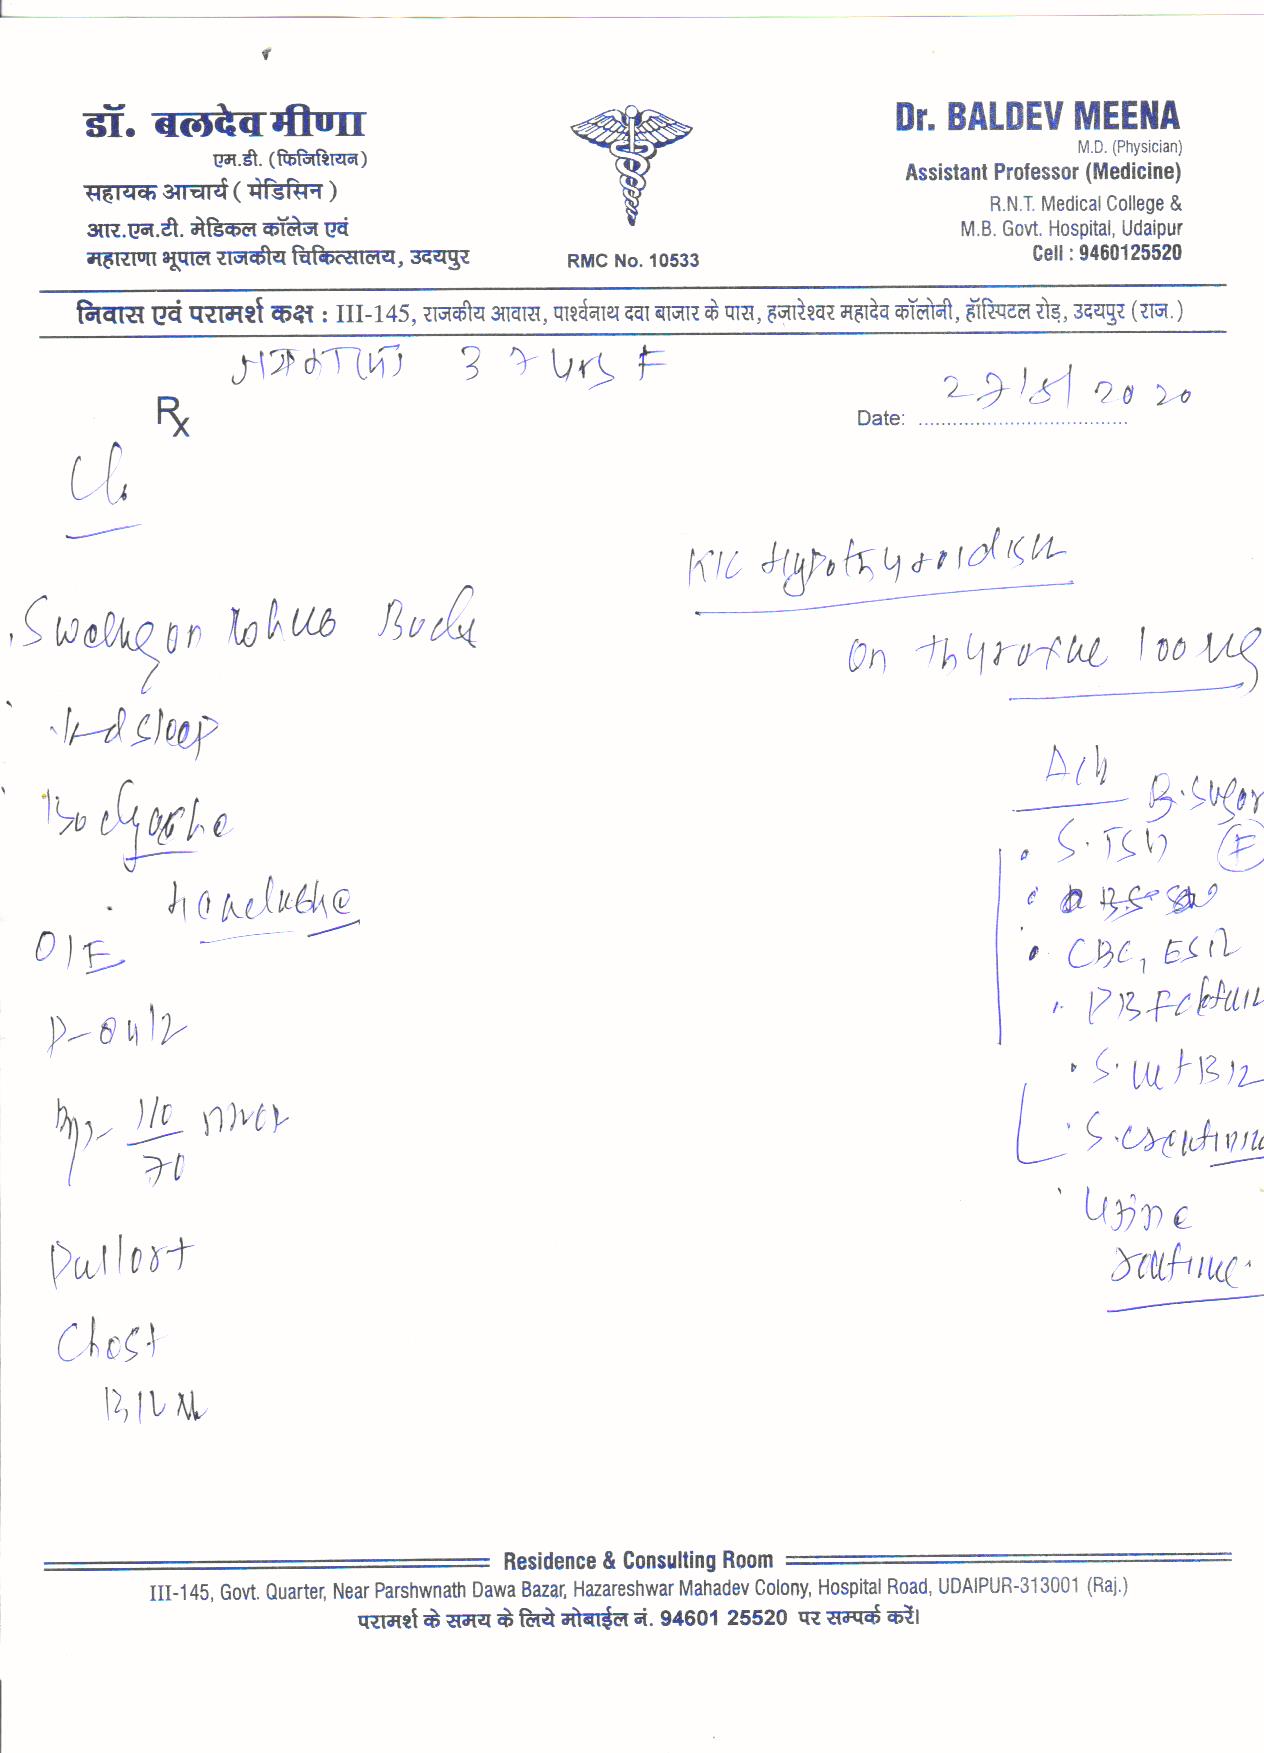 डॉ. बलदेव मीणा
एम.डी. (फिजिशियन)
सहायक आचार्य ( मेडिसिन )
आर.एन.टी. मेडिकल कॉलेज एवं
महाराणा भूपाल राजकीय चिकित्सालय, उदयपुर
RMC No. 10533
Dr. BALDEV MEENA
M.D. (Physician)
Assistant Professor (Medicine)
R.N.T. Medical College &
M.B. Govt. Hospital, Udaipur
Cell : 9460125520
निवास एवं परामर्श कक्ष : III-145, राजकीय आवास, पार्श्वनाथ दवा बाजार के पास, हजारेश्वर महादेव कॉलोनी, हॉस्पिटल रोड़, उदयपुर (राज.)
37 yrs F
Rx
Date: 27/5/2020
K/C Hypothyroidism
on thyroxine 100 ug
Swelling on whole Body
sleep
Bodyache
Headache
O/E
P-84/2
Bp- 110/70 mmHg
Pallor +
Chest
B/L
Adv
B. Sugar (F)
S. TSH
CBC, ESR
PBF
S. Vit B12
S. creatinine
Urine
routine
Residence & Consulting Room
III-145, Govt. Quarter, Near Parshwnath Dawa Bazar, Hazareshwar Mahadev Colony, Hospital Road, UDAIPUR-313001 (Raj.)
परामर्श के समय के लिये मोबाईल नं. 94601 25520 पर सम्पर्क करें।